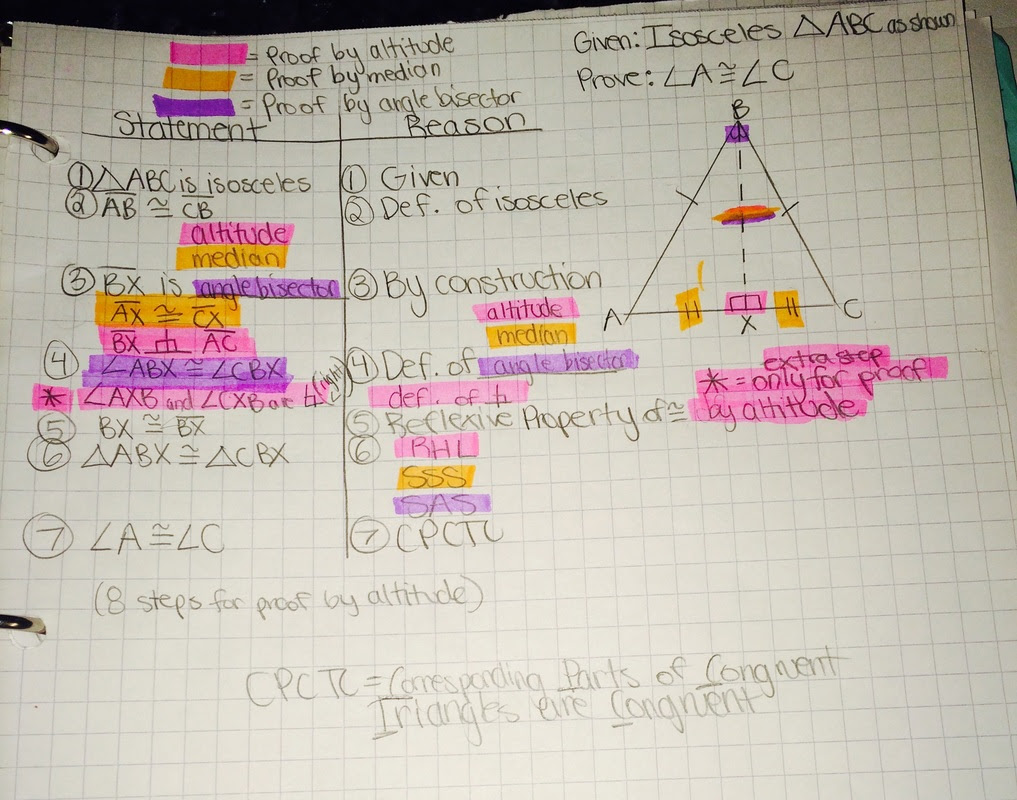 = Proof by altitude
= Proof by median
= Proof by angle bisector
Given: Isosceles △ABC as shown
Prove: ∠A ≅ ∠C
Statement
Reason
① △ABC is isosceles
① Given
② AB ≅ CB
② Def. of isosceles
altitude
median
③ BX is angle bisector
③ By construction
AX ≅ CX
BX ⊥ AC
altitude
median
④ ∠ABX ≅ ∠CBX
④ Def. of angle bisector
* ∠AXB and ∠CXB are rt ∠ (right)
def. of ⊥
⑤ BX ≅ BX
⑤ Reflexive Property of ≅
⑥ △ABX ≅ △CBX
⑥ RHL
SSS
SAS
⑦ ∠A ≅ ∠C
⑦ CPCTC
(8 steps for proof by altitude)
B
A
X
C
extra step
* = only for proof
by altitude
CPCTC = Corresponding Parts of Congruent
Triangles are Congruent